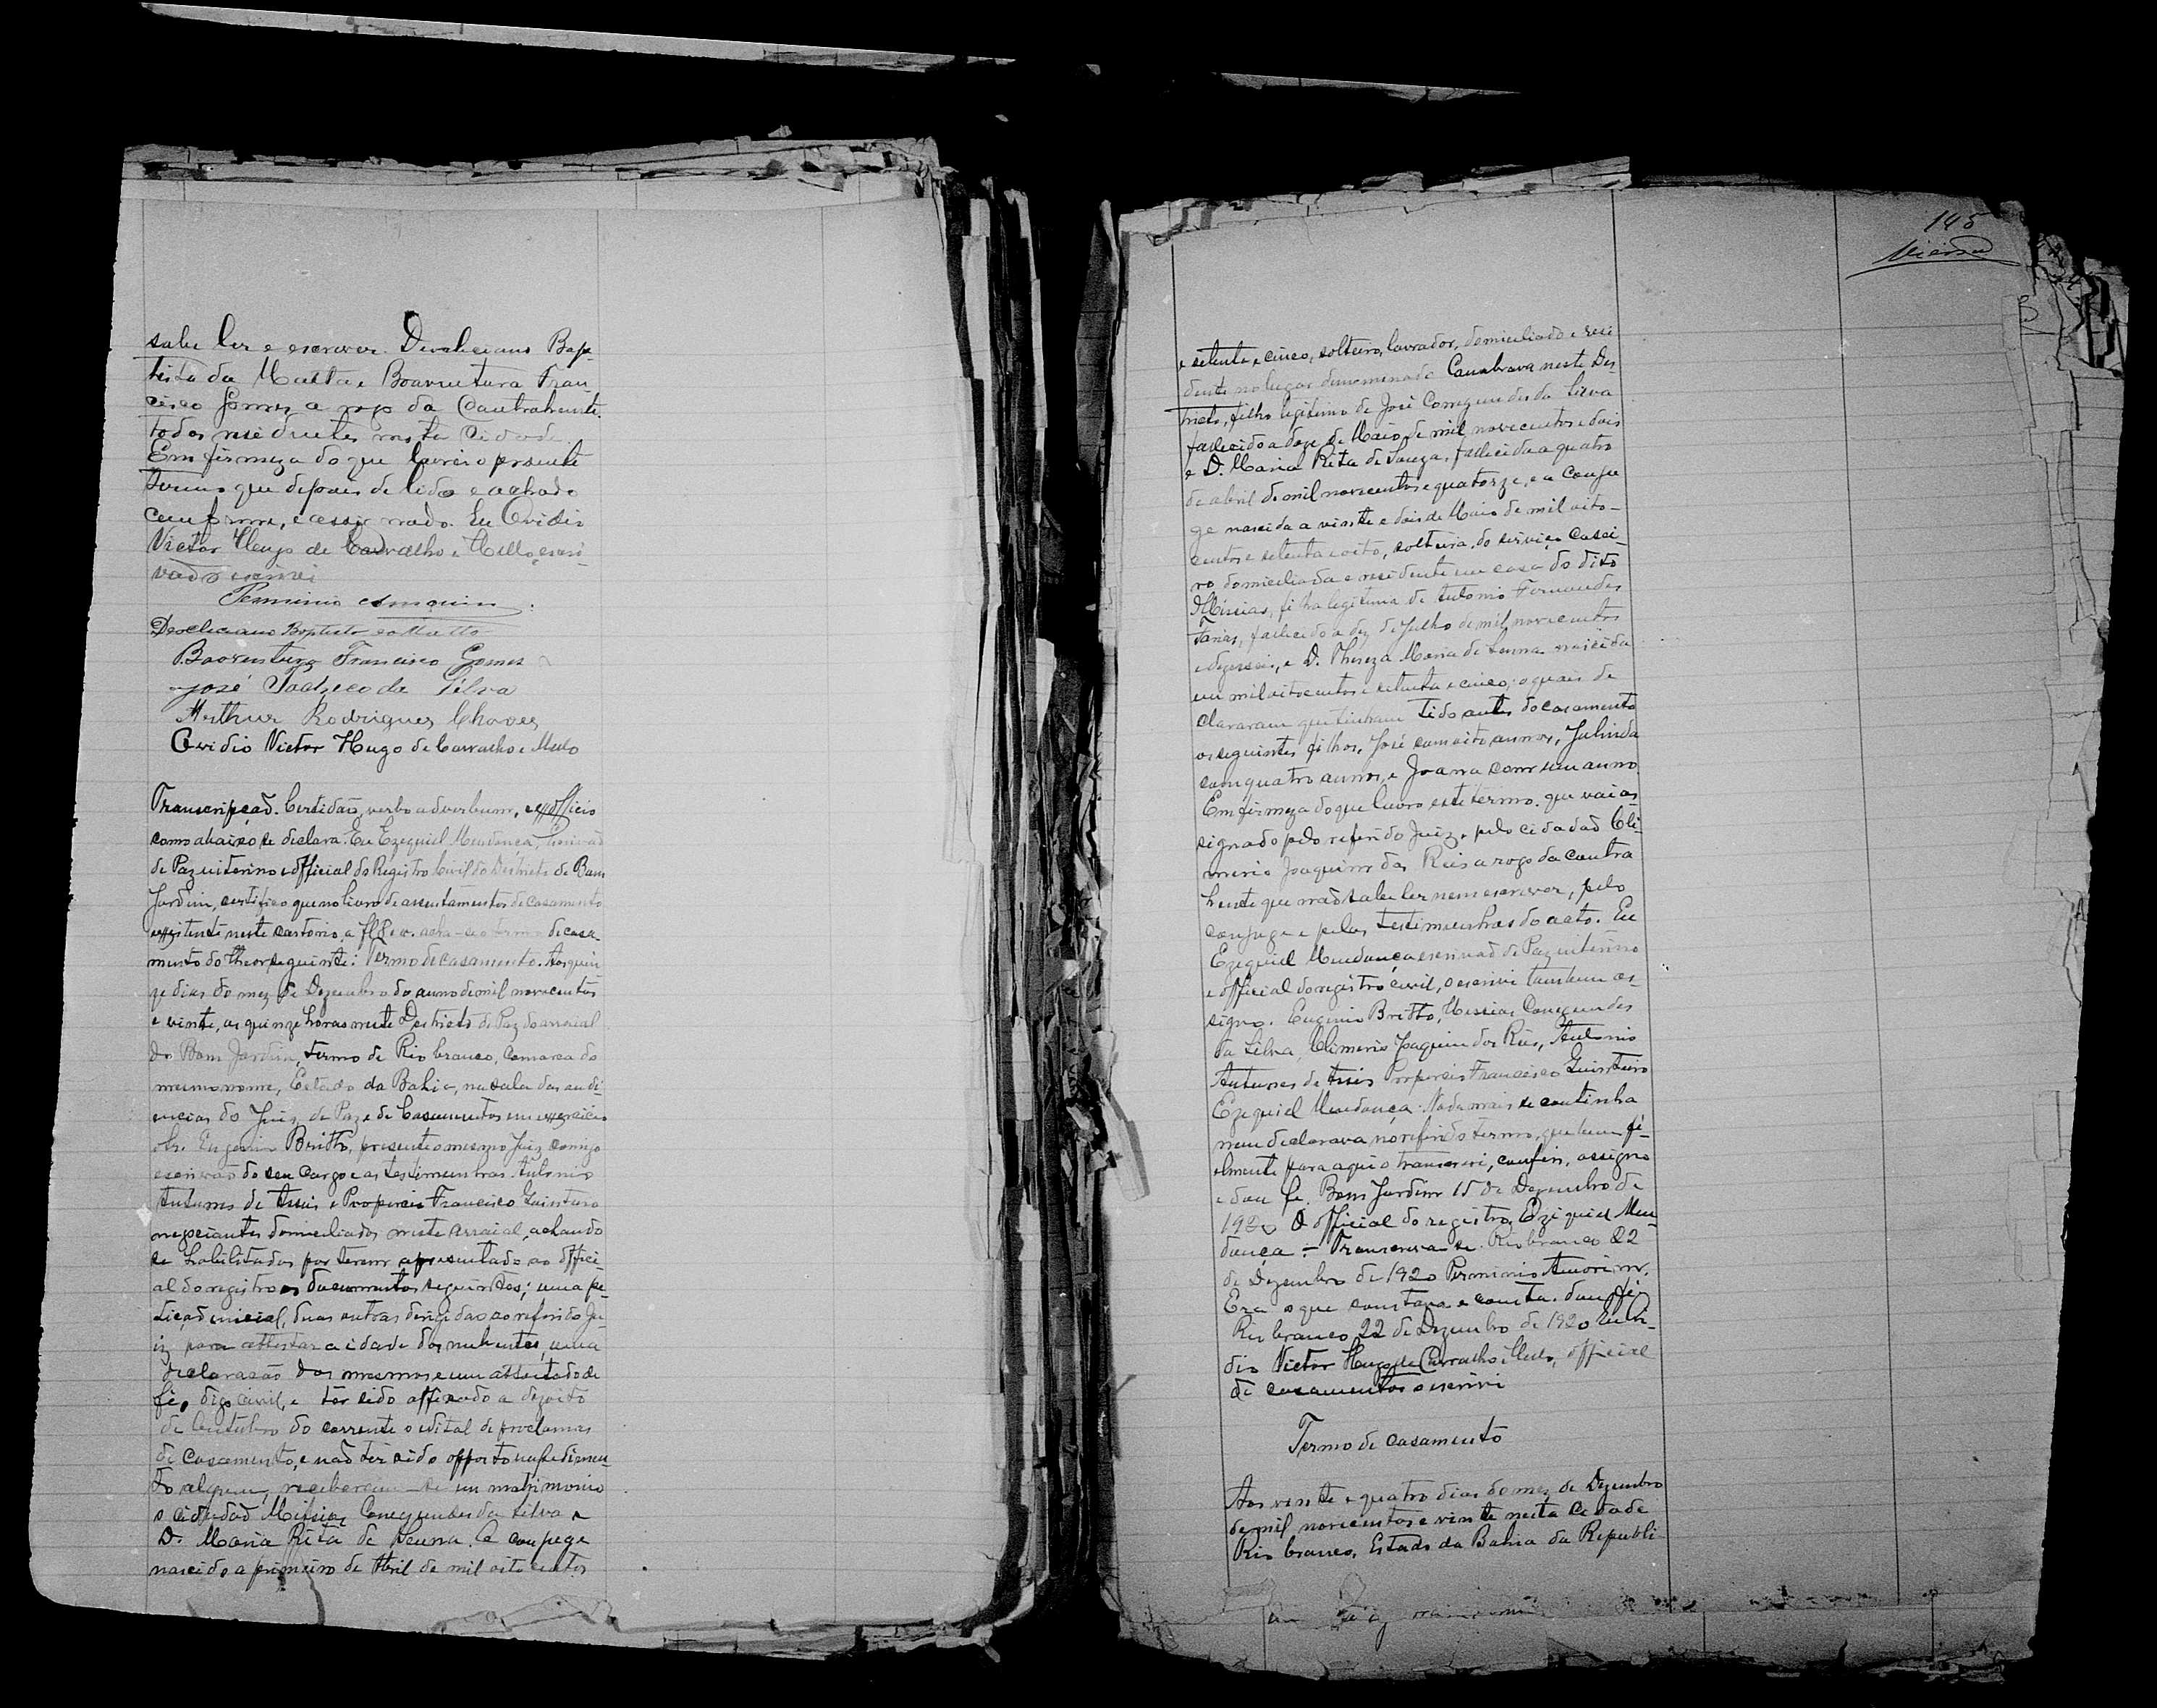 sabe ler e escrever. Deocleciano Bap-
tista da Matta e Boaventura Fran-
cisco Gomes a rogo da Contrahente.
todos residentes nesta Cidade.
Em firmeza do que lavrei o presente
termo que depois de lido e achado
conforme, e assignado. Eu Ovidio
Victor Hugo de Carvalho e Mello, escri-
vão o escrevi
Perminio Amorim.
Deocleciano Baptista da Matta
Boaventura Francisco Gomes
José Pacheco da Silva
Arthur Rodrigues Chaves
Ovidio Victor Hugo de Carvalho e Mello
Transcripção. Certidão, verbo adverbum, exofficio
como abaixo se declara. Eu Ezequiel Mendonça, Escrivão
de Paz interino e official do Registro Civil do Districto de Bom
Jardim, certifico que no livro de assentamentos de casamento
existente neste cartorio a fl 8 e v. acha-se o termo de casa-
mento do theor seguinte: Termo de casamento. Aos quin-
ze dias do mez de Dezembro do anno de mil novecentos
e vinte, as quinze horas neste Destricto de Paz do arraial
do Bom Jardim, termo de Rio branco, Comarca do
mesmo nome, Estado da Bahia, na sala das audi-
encias do Juiz de Paz e de Casamentos em exercicio
Eugenio Britto, presente o mesmo Juiz comigo
escrivão do seu cargo e as testemunhas Antonio
Antunes de Assis e Propercio Francisco Quinteiro
negociantes domiciliados neste arraial, achando
se habilitados por terem apresentado ao offici-
al do registro os documentos seguintes; uma pe-
tição inicial, duas outras dirigidas ao referido Ju-
iz para attestar a idade dos nubentes, uma
declaração dos mesmos e um attestado de
fé, digo civil, e ter sido affixado a dezoito
de Outubro do corrente o edital de proclamas
de casamento, e não ter sido opposto impedimen-
to algum, receberam-se em matrimonio
o cidadão Messias Conegundes da Silva e
D. Maria Rita de Senna. O conjuge
nascido a primeiro de Abril de mil oito centos
145
e setenta e cinco, solteiro, lavrador, domiciliado e resi
dente no lugar denominado Canabrava neste Des
tricto, filho legitimo de José Conegundes da Silva
fallecido a doze de Maio de mil novecentos e dois
e D. Maria Rita de Souza, fallecida a quatro
de abril de mil novecentos e quatorze, e a conju
ge nascida a vinte e dois de Maio de mil oito-
centos e setenta e oito, solteira, do serviço casei-
ro domiciliada e residente em casa do dito
Messias, filha legitima de Antonio Fernandes
Farias, fallecido a dez de Julho de mil novecentos
e dezesseis, e D. Thereza Maria de Senna nascida
em mil oitocentos e setenta e cinco; o quaes de
clararam que tinham tido antes do casamento
os seguintes filhos, José com oito annos, Julinda
com quatro annos, e Joana com um anno.
Em firmeza do que lavro este termo, que vai as
signado pelo referido Juiz, pelo cidadão Cli-
merio Joaquim dos Reis a rogo da contra
hente que não sabe ler nem escrever, pelo
conjuge e pelas testimunhas do acto. Eu
Ezequiel Mendonça escrivão de Paz interino
e official do registro civil, o escrivi tambem as-
signo. Eugenio Britto, Messias Conegundes
da Silva, Climerio Joaquim dos Reis, Antonio
Antunes de Assis Propercio Francisco Quinteiro
Ezequiel Mendonça. Nada mais se continha
nem declarava no referido termo, que bem fi-
elmente para aqui o transcrevi, conferi, assigno
e dou fé. Bom Jardim 15 de Dezembro de
1920 O official do registro, Ezequiel Men-
donça ÷ Transcreva-se. Rio branco 22
de Dezembro de 1920 Perminio Amorim.
Era o que constava e consta. dou fé.
Rio branco 22 de Dezembro de 1920 Eu Ovi-
dio Victor Hugo de Carvalho e Mello, official
de casamentos o escrivi
Termo de casamento
Aos vinte e quatro dias do mez de Dezembro
de mil novecentos e vinte nesta Cidade
Rio branco, Estado da Bahia da Republi